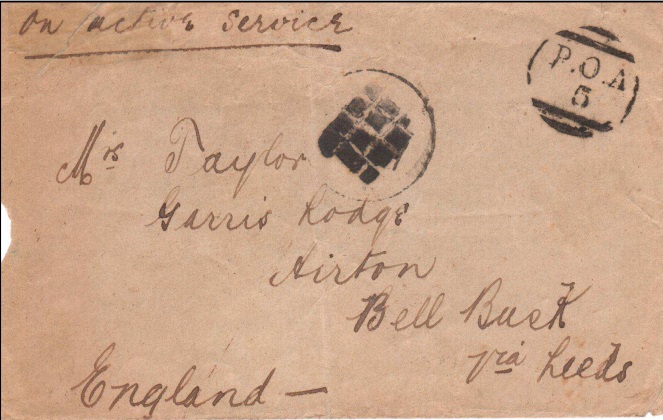 On active service
P.O.A
5
Mrs Taylor
Garris Lodge
Airton
Bell Busk
via Leeds
England —